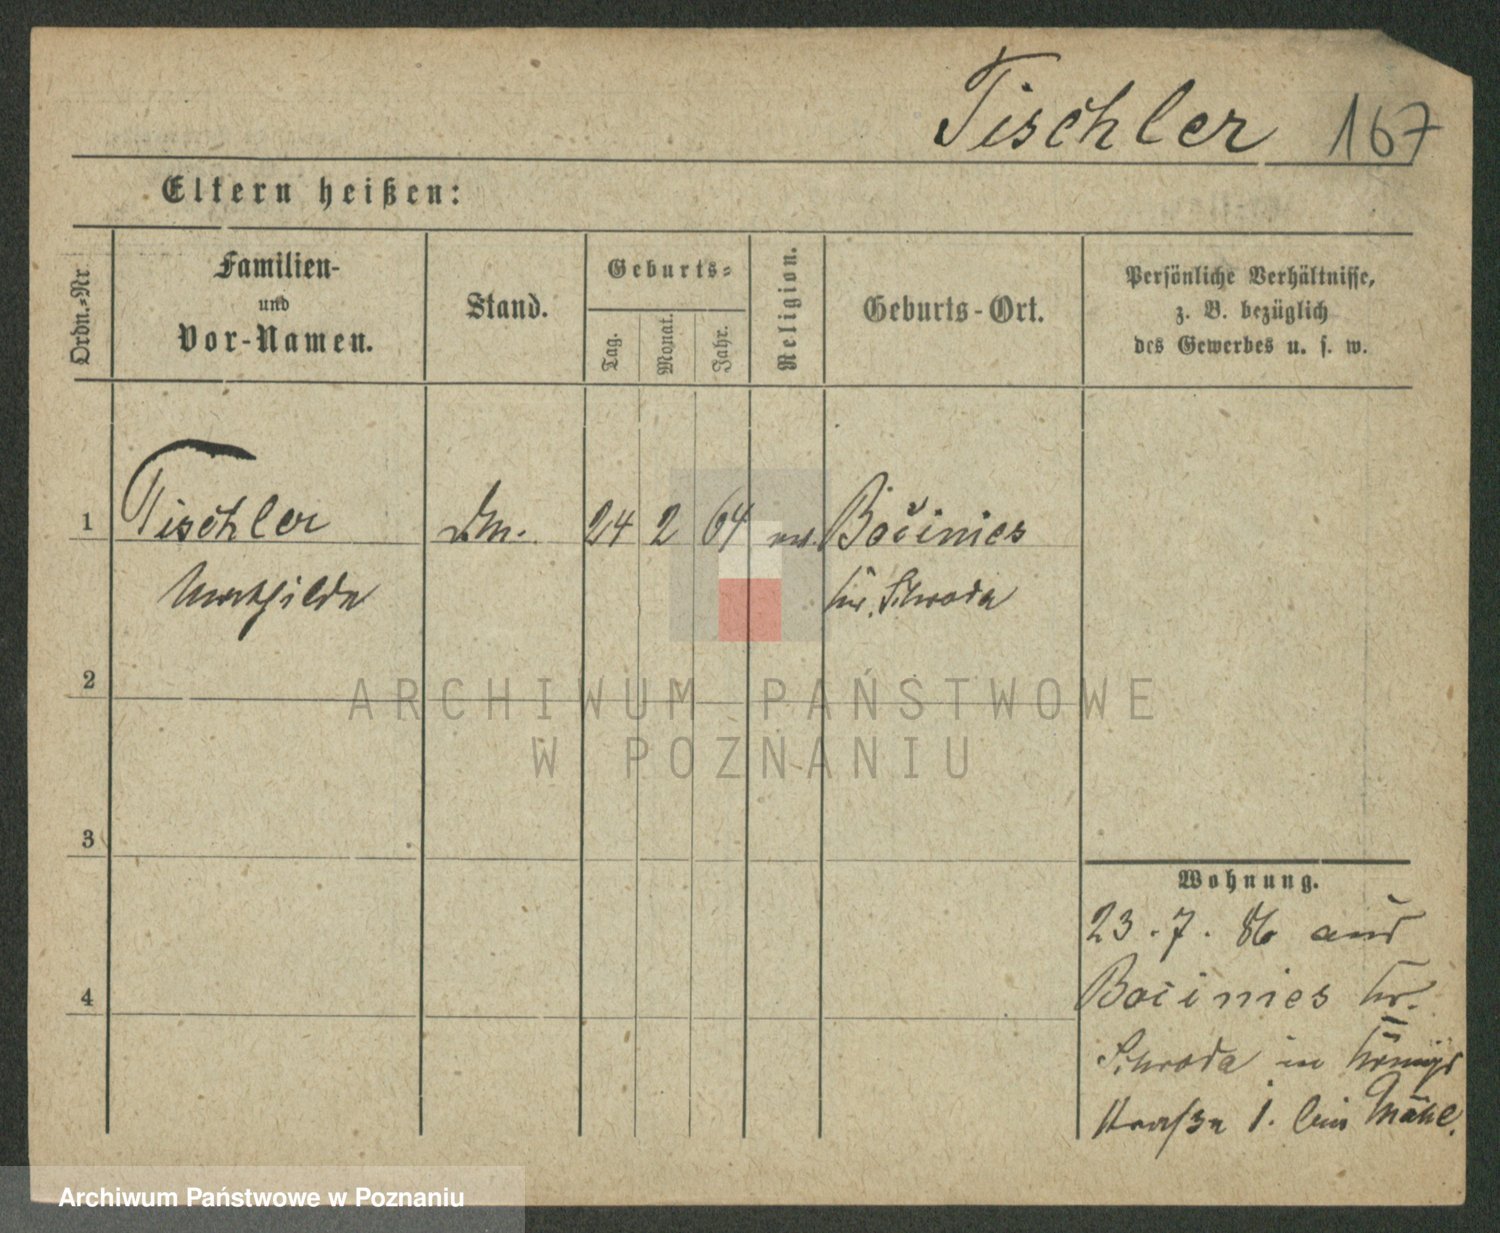 Tischler 167
Eltern heißen:
Ordn.-Nr.
Familien-
und
Vor-Namen.
Stand.
Geburts-
Tag.
Monat.
Jahr.
Religion.
Geburts-Ort.
Persönliche Verhältnisse,
z. B. bezüglich
des Gewerbes u. s. w.
1 Tischler 24 2 64
Mathilde Kr. Schroda
2
ARCHIWUM PAŃSTWOWE
W POZNANIU
3
Wohnung.
23. 7. 86 aus
Kr.
4
Schroda in Königs
straße 1. bei
Archiwum Państwowe w Poznaniu